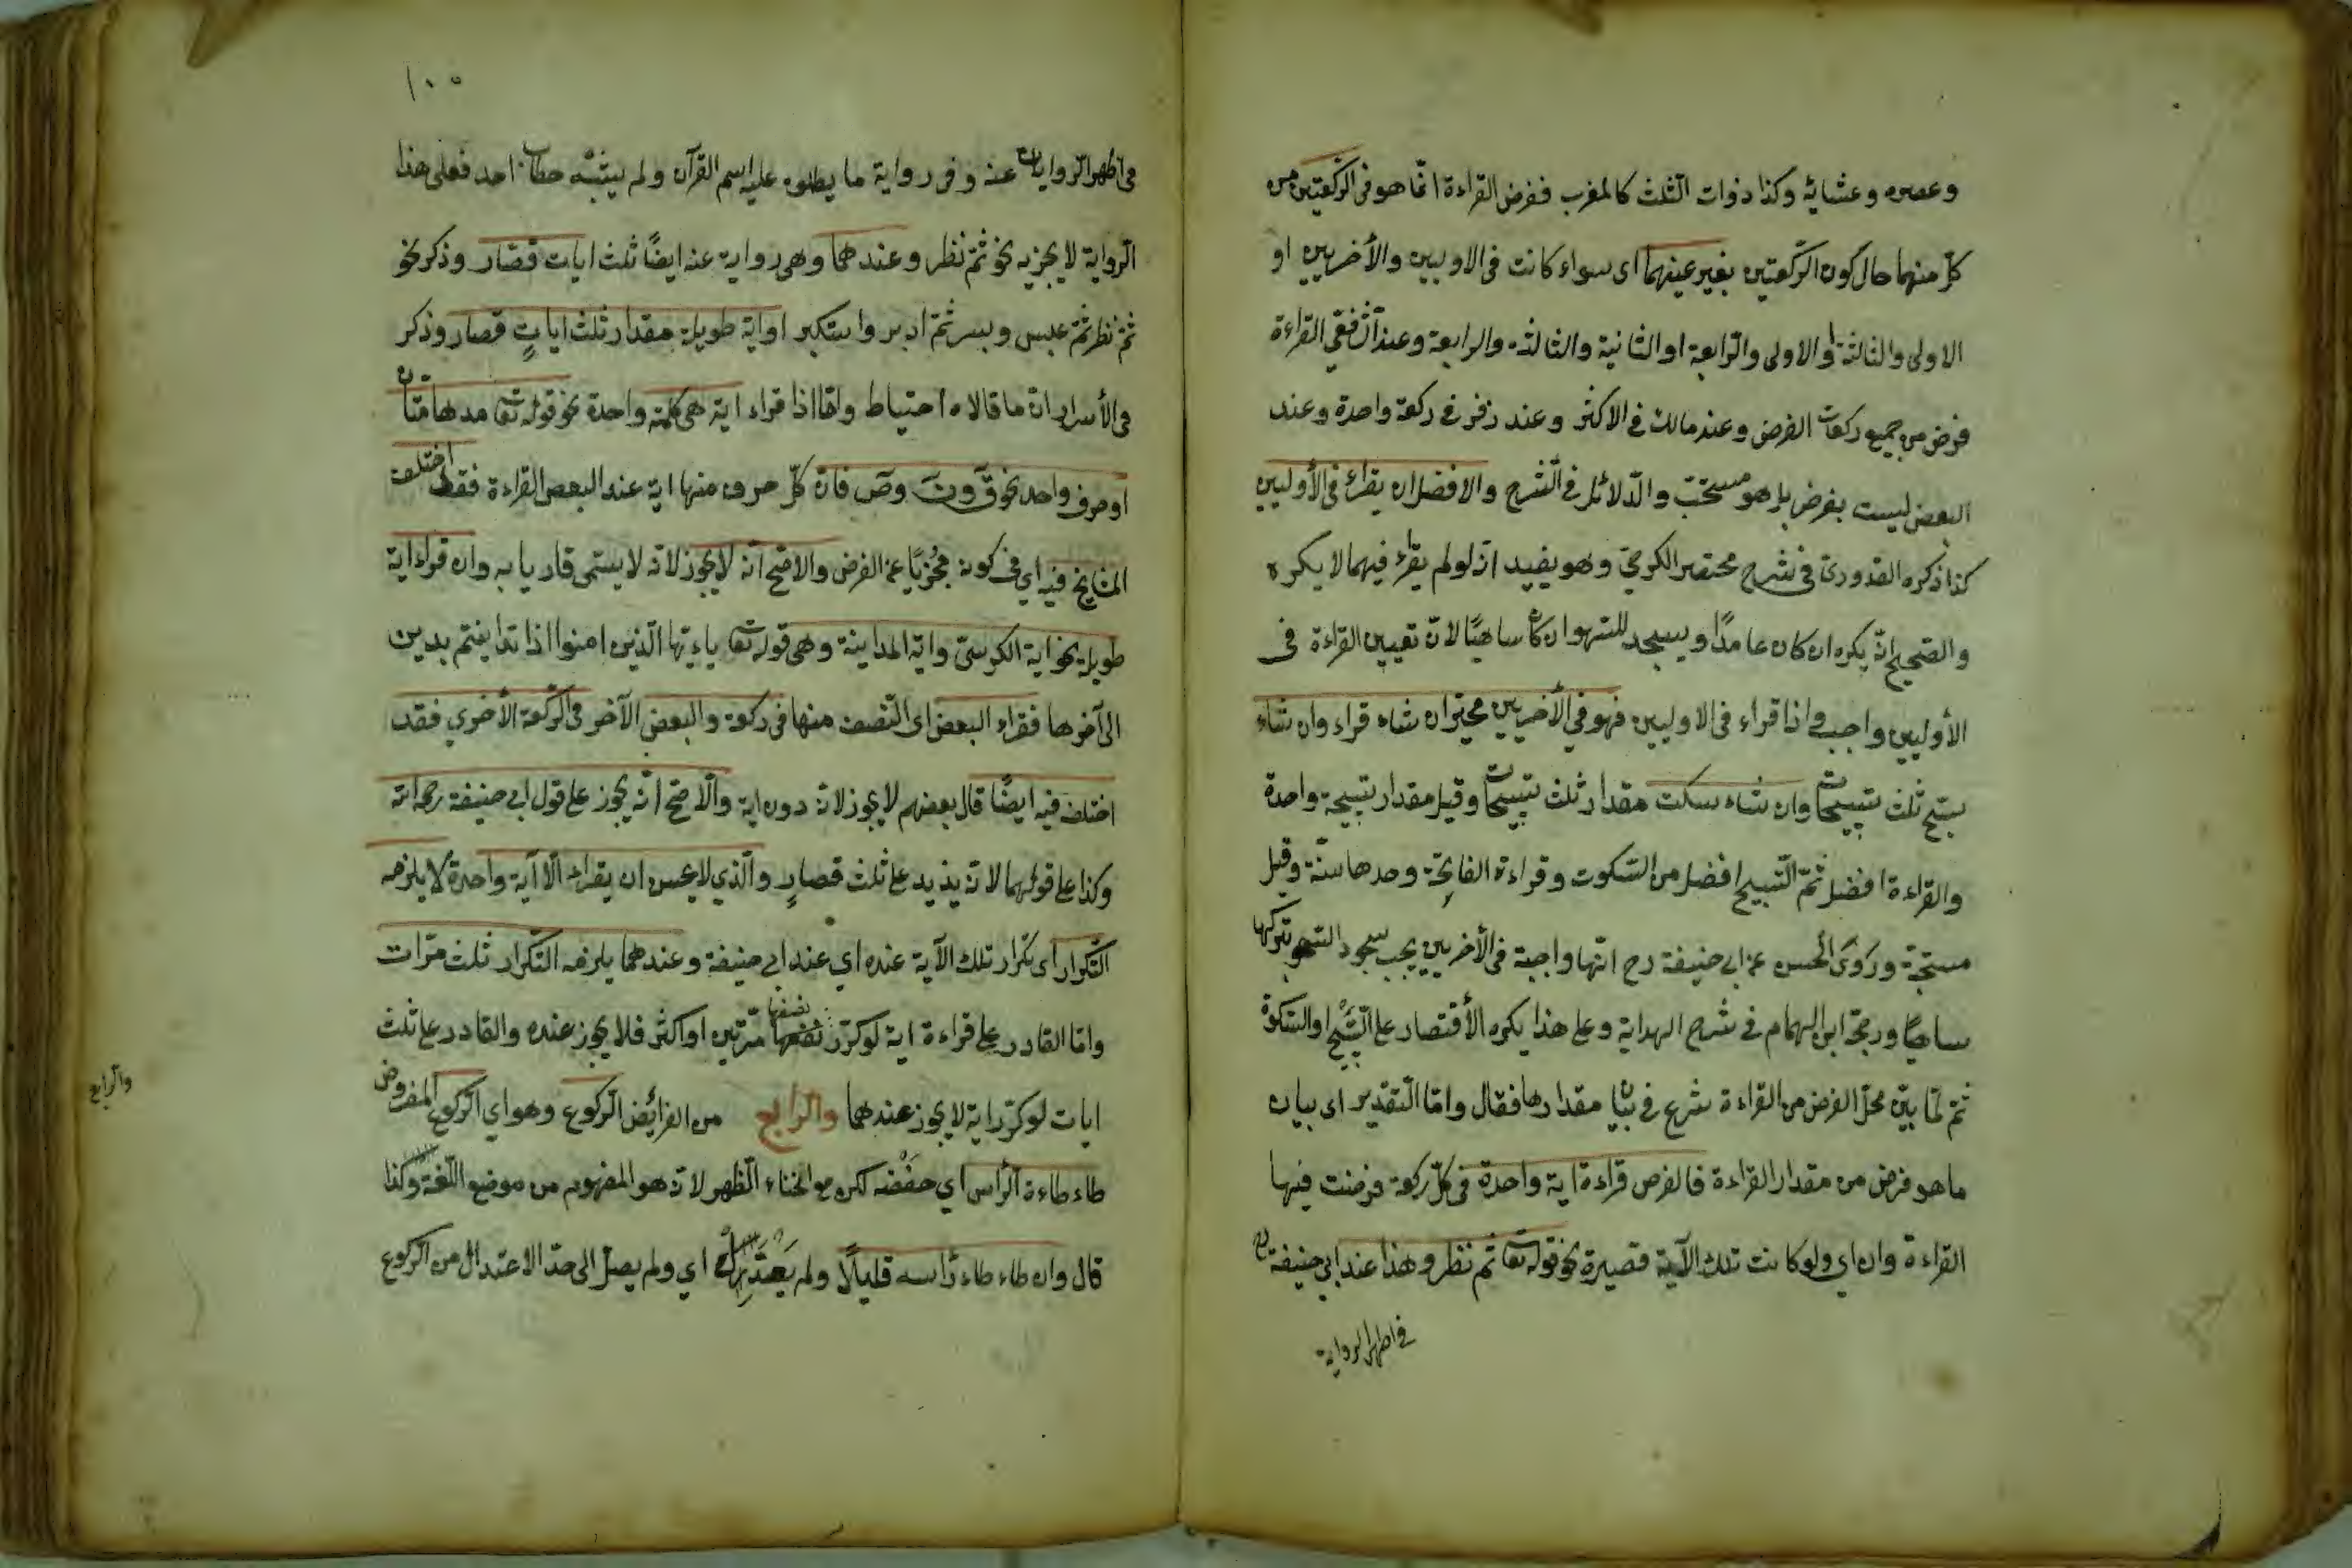 وعصره وعشائه وكذا ذوات الثلث كالمغرب ففرض القراءة انما هو في الركعتين من
كل منهما حال كون الركعتين بغير عينهما اى سواء كانت في الاوليين والأخريين او
الاولى والثالثة او الاولى والرابعة او الثانية والثالثة والرابعة وعند الشافعي القراءة
فرض من جميع ركعات الفرض وعند مالك في الاكثر وعند زفر في ركعة واحدة وعند
البعض ليست بفرض بل هو مستحب والدلائل في الشرح والافضل ان يقراء في الأوليين
كذا ذكره القدورى في شرح مختصر الكرخي وهو يفيد انه لو لم يقراء فيهما لا يكره
والصحيح انه يكره ان كان عامدًا ويسجد للسهو ان كان ساهيًا لان تعيين القراءة في
الأوليين واجب واذا قراء في الاوليين فهو في الأخريين مخير ان شاء قراء وان شاء
سبح ثلث تسبيحات وان شاء سكت مقدار ثلث تسبيحات وقيل مقدار تسبيحة واحدة
والقراءة افضل ثم التسبيح افضل من السكوت وقراءة الفاتحة وحدها سنة وقيل
مستحبة وروى الحسن عن ابي حنيفة رح انها واجبة في الأخريين يجب سجود السهو بتركها
ساهيًا ورجحه ابن الهمام في شرح الهداية وعلى هذا يكره الأقتصار على التسبيح او السكوة
ثم لما بين محل الفرض من القراءة شرع في بيان مقدارها فقال واما التقدير اى بيان
ما هو فرض من مقدار القراءة فالفرض قراءة اية واحدة في كل ركعة فرضت فيها
القراءة وان اى ولو كانت تلك الآية قصيرة نحو قوله تعا ثم نظر وهذا عند ابي حنيفة رح
في اظهر الرواية
١٠٥
في اظهر الروايات عنه وفي رواية ما يطلق عليه اسم القرآن ولم يشبه خطاب احد فعلى هذا
الرواية لا يجزيه نحو ثم نظر وعندهما وهي رواية عنه ايضًا ثلث ايات قصار وذكر نحو
ثم نظر ثم عبس وبسر ثم ادبر واستكبر او اية طويلة مقدار ثلث اياتٍ قصار وذكر
في الأسرار ان ما قالاه احتياط واما اذا قراء اية هي كلمة واحدة نحو قوله تعا مدهامتان
او حرف واحد نحو ق ون وص فان كل حرف منها اية عند البعض القراءة فقد اختلف
المشايخ فيه اي في كونه مجزيًا عن الفرض والاصح انه لا يجوز لانه لا يسمى قاريا به وان قراء اية
طويلة نحو اية الكرسي واية المداينة وهي قوله تعا ياءيها الذين امنوا اذا تداينتم بدين
الى آخرها فقراء البعض اى النصف منها في ركعة والبعض الآخر في الركعة الأخرى فقد
اختلف فيه ايضًا قال بعضهم لا يجوز لانه دون اية والاصح انه يجوز على قول ابي حنيفة رحمه الله
وكذا على قولهما لانه يزيد على ثلث قصارٍ والذي لا يحسن ان يقراء الا آية واحدة لا يلزمه
التكرار اى تكرار تلك الآية عنده اي عند ابي حنيفة وعندهما يلزمه التكرار ثلث مرات
واما القادر على قراءة اية لو كرر نصفها نصفها مرتين او اكثر فلا يجوز عنده والقادر على ثلث
ايات لو كرر اية لا يجوز عندهما والرابع من الفرائض الركوع وهو اي الركوع المفروض
طاءطاءة الرأس اي خفضه لكن مع انحناء الظهر لانه هو المفهوم من موضع اللغة وكذا
قال وان طاءطاء رأسه قليلًا ولم يعتدل اي ولم يصل الى حد الاعتدال من الركوع
والرابع